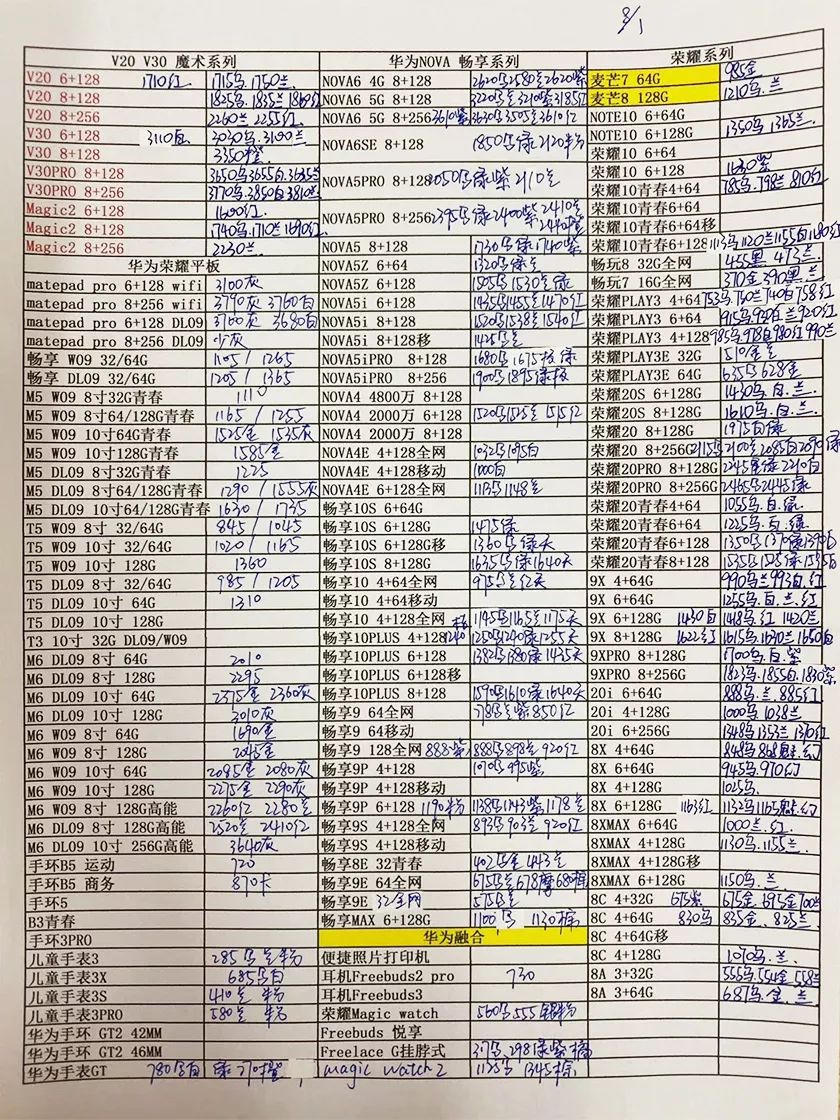 8/1
V20 V30 魔术系列 华为NOVA 畅享系列 荣耀系列
V20 6+128 1710红 1715马 1750兰
V20 8+128 1825马 1835兰 1860红
V20 8+256 2260兰 2255红
V30 6+128 3110白 3030马 3100兰
V30 8+128 3350橙
V30PRO 8+128 3650马 3655白
V30PRO 8+256 3770马 3850白 3810兰
Magic2 6+128 1600红
Magic2 8+128 1740马 1710兰 1690红
Magic2 8+256 2230兰
华为荣耀平板
matepad pro 6+128 wifi 3100灰
matepad pro 8+256 wifi 3790灰 3760白
matepad pro 6+128 DL09 3760灰 3680白
matepad pro 8+256 DL09 少灰
畅享 W09 32/64G 1105 / 1265
畅享 DL09 32/64G 1205 / 1365
M5 W09 8寸32G青春 1110
M5 W09 8寸64/128G青春 1165 / 1255
M5 W09 10寸64G青春 1525金 1535灰
M5 W09 10寸128G青春 1585金
M5 DL09 8寸32G青春 1225
M5 DL09 8寸64/128G青春 1290 / 1555灰
M5 DL09 10寸64/128G青春 1630 / 1735
T5 W09 8寸 32/64G 845 / 1045
T5 W09 10寸 32/64G 1020 / 1165
T5 W09 10寸 128G 1360
T5 DL09 8寸 32/64G 985 / 1205
T5 DL09 10寸 64G 1310
T5 DL09 10寸 128G
T3 10寸 32G DL09/W09
M6 DL09 8寸 64G 2010
M6 DL09 8寸 128G 2295
M6 DL09 10寸 64G 2375金 2360灰
M6 DL09 10寸 128G 3010灰
M6 W09 8寸 64G 1690金
M6 W09 8寸 128G 2045金
M6 W09 10寸 64G 2095金 2080灰
M6 W09 10寸 128G 2275金 2290灰
M6 W09 8寸 128G高能 2260红 2280兰
M6 DL09 8寸 128G高能 2520兰 2410红
M6 DL09 10寸 256G高能 3640灰
手环B5 运动 720
手环B5 商务 870卡
手环5
B3青春
手环3PRO
儿童手表3 285马兰粉
儿童手表3X 685马白
儿童手表3S 410兰 粉
儿童手表3PRO 580兰 粉
华为手环 GT2 42MM
华为手环 GT2 46MM
华为手表GT 780马白
NOVA6 4G 8+128 2620马 2580兰 2620紫
NOVA6 5G 8+128 3220马兰 3210紫 3185红
NOVA6 5G 8+256 3610紫 3630马 3505兰 3610红
NOVA6SE 8+128 1850马绿 2120粉
NOVA5PRO 8+128 2050马绿紫 2110兰
NOVA5PRO 8+256 2395马绿 2400紫 2410兰 2440橙
NOVA5 8+128 1730马绿 1740紫
NOVA5Z 6+64 1320马绿兰
NOVA5Z 6+128 1505马 1530兰绿
NOVA5i 6+128 1435马 1455兰 1470红
NOVA5i 8+128 1520马 1538兰 1540红
NOVA5i 8+128移 1425马兰
NOVA5iPRO 8+128 1680马 1675极 绿
NOVA5iPRO 8+256 1900马 1895绿极
NOVA4 4800万 8+128
NOVA4 2000万 6+128 1520马 1525兰 1515红
NOVA4 2000万 8+128
NOVA4E 4+128全网 1032马 1095白
NOVA4E 4+128移动 1000白
NOVA4E 6+128全网 1113马 1148兰
畅享10S 6+64G
畅享10S 6+128G 1475绿
畅享10S 6+128G移 1360马绿天
畅享10S 8+128G 1635马绿 1640天
畅享10 4+64全网 975马兰红天
畅享10 4+64移动
畅享10 4+128全网 1145马 1165兰 1175天
畅享10PLUS 4+128 1250马 1240绿 1255天
畅享10PLUS 6+128 1382马 1380绿 1435天
畅享10PLUS 6+128移
畅享10PLUS 8+128 1590马 1610绿 1640天
畅享9 64全网 778马兰紫 850红
畅享9 64移动
畅享9 128全网 888紫 888马 898兰 920红
畅享9P 4+128 1070马 995紫
畅享9P 4+128移动
畅享9P 6+128 1190粉 1138马 1143紫 1178兰
畅享9S 4+128全网 893马 903兰 920红
畅享9S 4+128移动
畅享8E 32青春 402马金 443兰
畅享9E 64全网 675马兰 678摩 680棕
畅享9E 32全网 575马兰
畅享MAX 6+128G 1100马 1130棕
华为融合
便捷照片打印机
耳机Freebuds2 pro 730
耳机Freebuds3
荣耀Magic watch 560马 555银粉
Freebuds 悦享
Freelace G挂脖式 317马 298绿紫橘
magic watch2 1125马 1345棕
麦芒7 64G 985金
麦芒8 128G 1210马.兰
NOTE10 6+64G
NOTE10 6+128G 1350马 1365兰
荣耀10 6+64
荣耀10 6+128 1630紫
荣耀10青春4+64 785马.798兰 810红
荣耀10青春6+64
荣耀10青春6+64移
荣耀10青春6+128 1113马 1120兰 1155白 1180红
畅玩8 32G全网 455黑 473兰
畅玩7 16G全网 370金 390黑兰
荣耀PLAY3 4+64 753马 750兰 740白 758红
荣耀PLAY3 6+64 915马 930白兰 920红
荣耀PLAY3 4+128 985马 978白 980红 990兰
荣耀PLAY3E 32G 510金兰
荣耀PLAY3E 64G 635马 628金
荣耀20S 6+128G 1430马.白.兰
荣耀20S 8+128G 1610马.白.兰
荣耀20 8+128G 1975白绿
荣耀20 8+256G 2115马 2100兰 2085白 2090绿
荣耀20PRO 8+128G 2245黑绿 2210白
荣耀20PRO 8+256G 2465马 2445绿
荣耀20青春4+64 1055马.白.绿
荣耀20青春6+64 1225马.白.绿
荣耀20青春6+128 1350马 1370绿 1390白
荣耀20青春8+128 1535马 1525绿 1535白
9X 4+64G 990马兰 993白.红
9X 6+64G 1255马.白.兰.红
9X 6+128G 1430白 1418马.红 1420兰
9X 8+128G 1622红 1615马 1630兰 1650白
9XPRO 8+128G 1700马.白.紫
9XPRO 8+256G 1823马.1855白.1830紫
20i 6+64G 888马.兰.885红
20i 4+128G 1000马 1038兰
20i 6+256G 1348马 1353兰 1370红
8X 4+64G 848马 868魅.红
8X 6+64G 945马.970红
8X 4+128G 1025马.
8X 6+128G 1163红 1132马 1165魅.红
8XMAX 6+64G 1000兰.红
8XMAX 4+128G 1130马.1155兰
8XMAX 4+128G移
8XMAX 6+128G 1150马.兰
8C 4+32G 675紫 675金.695金 700兰
8C 4+64G 830马 835金.825兰
8C 4+64G移
8C 4+128G 1070马.兰.
8A 3+32G 555马.554金 558兰
8A 3+64G 687马.金.兰